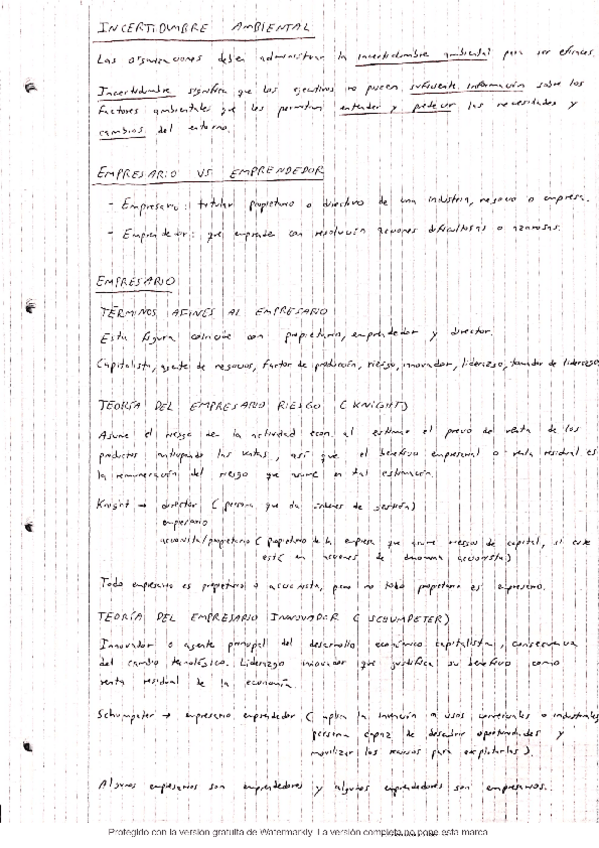 INCERTIDUMBRE AMBIENTAL
Las organizaciones deben administrar la incertidumbre ambiental para ser eficaces.
Incertidumbre significa que los ejecutivos no poseen suficiente información sobre los
factores ambientales que les permitan entender y predecir las necesidades y
cambios del entorno.
EMPRESARIO VS EMPRENDEDOR
- Empresario: titular propietario o directivo de una industria, negocio o empresa.
- Emprendedor: que emprende con resolución acciones dificultosas o azarosas.
EMPRESARIO
TÉRMINOS AFINES AL EMPRESARIO
Esta figura coincide con propietario, emprendedor y director.
Capitalista, agente de negocios, factor de producción, riesgo, innovador, liderazgo, tomador de
TEORÍA DEL EMPRESARIO RIESGO (KNIGHT)
Asume el riesgo de la actividad econ. al estimar el precio de venta de los
productos anticipando las ventas, así que el beneficio empresarial o renta residual es
la remuneración del riesgo que asume en tal estimación.
Knight → director (persona que da órdenes de gestión)
empresario
accionista/propietario (propietario de la empresa que asume riesgos de capital, si este
está en acciones se denomina accionista)
Todo empresario es propietario o accionista, pero no todo propietario es empresario.
TEORÍA DEL EMPRESARIO INNOVADOR (SCHUMPETER)
Innovador o agente principal del desarrollo económico capitalista, consecuencia
del cambio tecnológico. Liderazgo innovador que justifica su beneficio como
renta residual de la economía.
Schumpeter → empresario emprendedor (aplica la invención a usos comerciales o industriales,
persona capaz de descubrir oportunidades y
movilizar los recursos para explotarlas).
Algunos empresarios son emprendedores y algunos emprendedores son empresarios.
Protegido con la versión gratuita de Watermarkly. La versión completa no pone esta marca